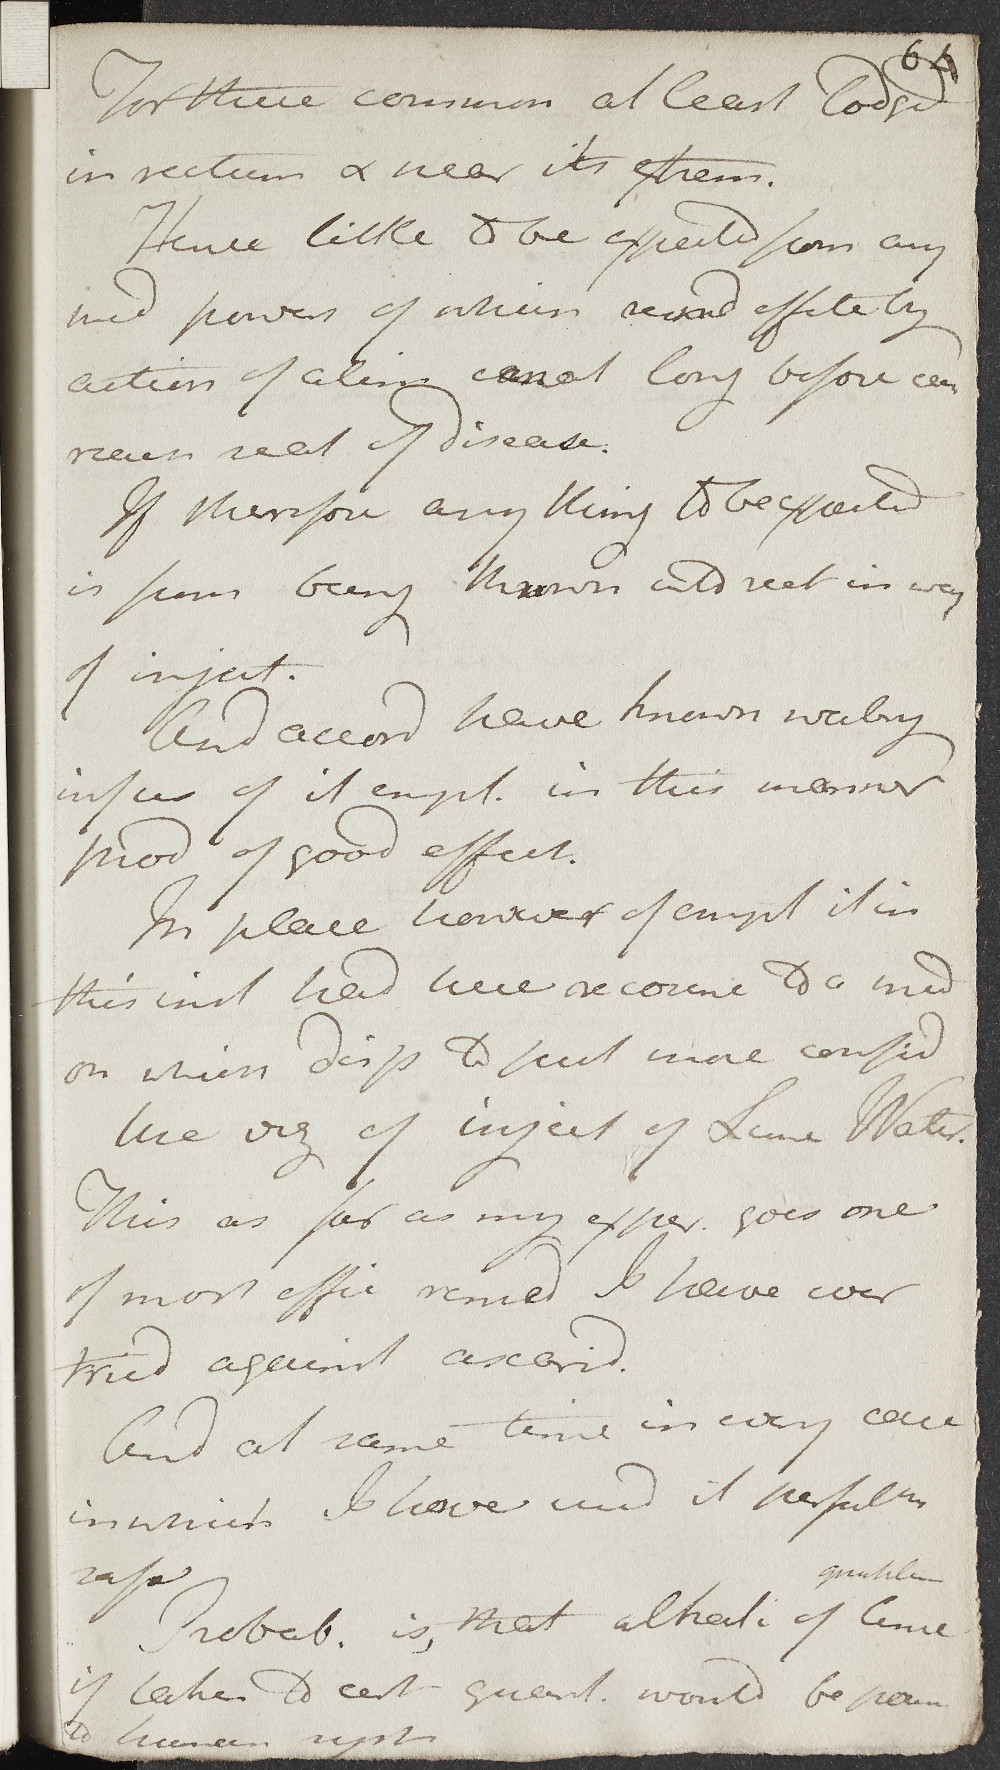 64
For these common at least lodged
in rectum & near its extrem.
Hence little to be expected from any
med powers of which rend effete by
action of alim canal long before can
reach seat of disease.
If therefore any thing to be expected
is from being thrown into rect in way
of inject.
And accord have known watery
infus of it empl. in this manner
prod of good effect.
In place however of empl it in
this inst had here recourse to a med
on which disp to put more confid
here viz of inject of Lime Water.
This as far as my exper. goes one
of most effic remed I have ever
tried against ascarid.
And at same time in every case
in which I have used it perfectly
safe
Probab. is, that alkali of lime
if taken to cert quant. would be
to human syst